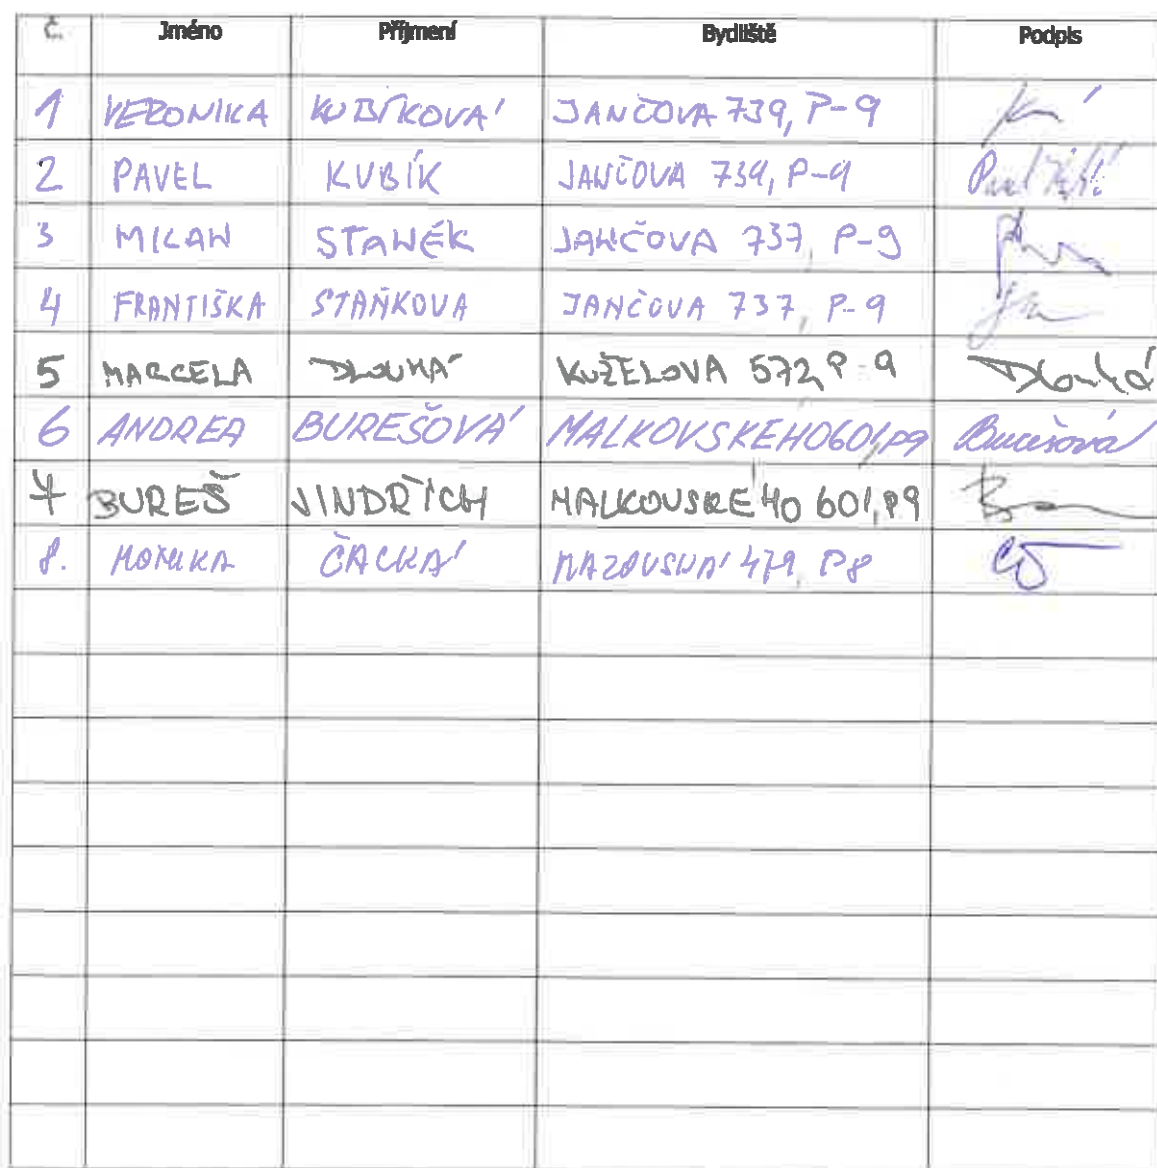 Č. Jméno Příjmení Bydliště Podpis
1 VERONIKA KUBÍKOVÁ JANČOVA 739, P-9
2 PAVEL KUBÍK JANČOVA 739, P-9
3 MILAN STANĚK JANČOVA 737, P-9
4 FRANTIŠKA STAŇKOVA JANČOVA 737, P-9
5 MARCELA DLOUHÁ KUŽELOVA 572, P-9 Dlouhá
6 ANDREA BUREŠOVÁ MALKOVSKÉHO 601, P9 Burešová
7 BUREŠ JINDŘICH MALKOVSKÉHO 601, P9
8. MONIKA ČACKÁ 479, P8